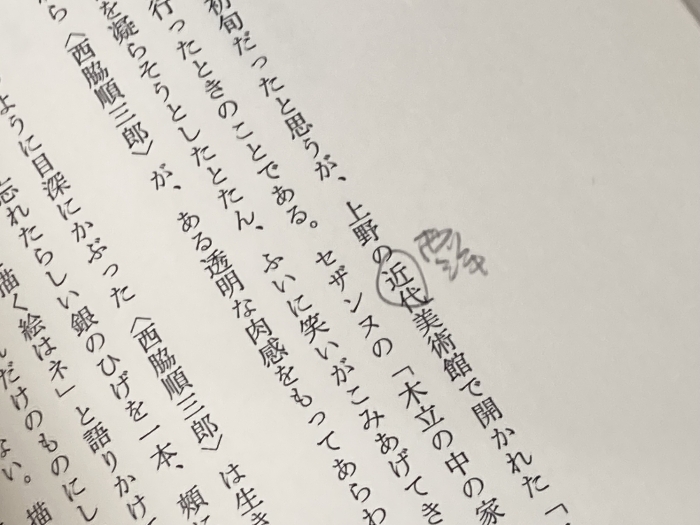 西洋
初旬だったと思うが、上野の近代美術館で開かれた「
行ったときのことである。セザンヌの「木立の中の家
を凝らそうとしたとたん、ふいに笑いがこみあげてき
ら〈西脇順三郎〉が、ある透明な肉感をもってあらわ
ように目深にかぶった〈西脇順三郎〉は生き
忘れたらしい銀のひげを一本、頰に
描く絵はネ」と語りかけ
だけのものにし
ない。描